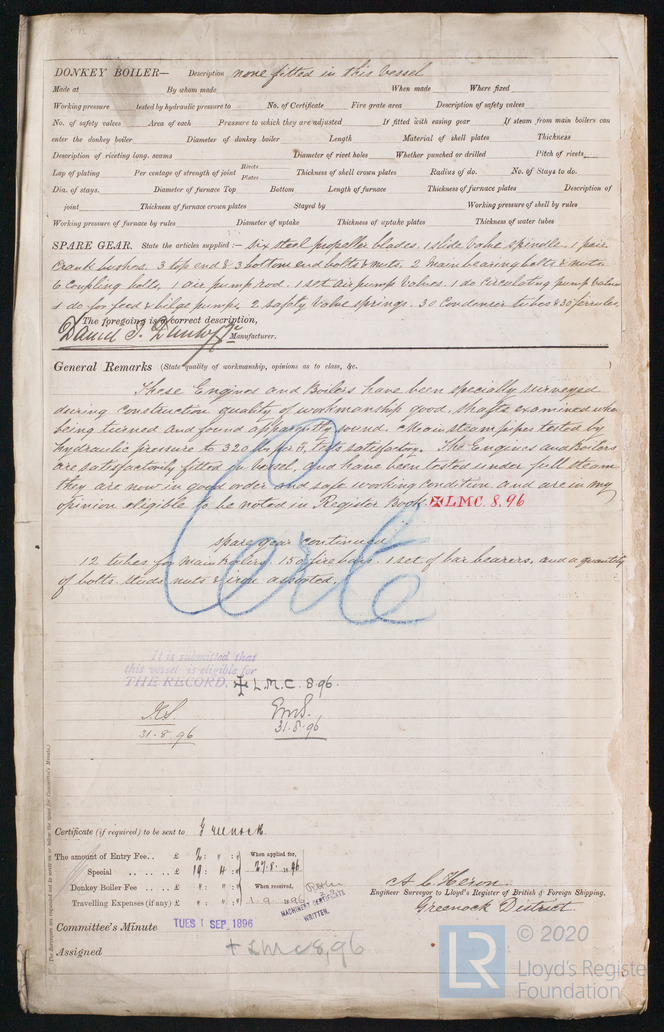 DONKEY BOILER— Description none fitted in this vessel
Made at By whom made When made Where fixed
Working pressure tested by hydraulic pressure to No. of Certificate Fire grate area Description of safety valves
No. of safety valves Area of each Pressure to which they are adjusted If fitted with easing gear If steam from main boilers can
enter the donkey boiler Diameter of donkey boiler Length Material of shell plates Thickness
Description of riveting long. seams Diameter of rivet holes Whether punched or drilled Pitch of rivets
Lap of plating Per centage of strength of joint Rivets Plates Thickness of shell crown plates Radius of do. No. of Stays to do.
Dia. of stays. Diameter of furnace Top Bottom Length of furnace Thickness of furnace plates Description of
joint Thickness of furnace crown plates Stayed by Working pressure of shell by rules
Working pressure of furnace by rules Diameter of uptake Thickness of uptake plates Thickness of water tubes
SPARE GEAR. State the articles supplied:— six steel propeller blades. 1 slide valve spindle. 1 pair
crank bushes. 3 top end & 3 bottom end bolts & nuts. 2 main bearing bolts & nuts
6 coupling bolts. 1 air pump rod. 1 set air pump valves. 1 do circulating pump valves
1 do for feed & bilge pumps. 2 safety valve springs. 30 condenser tubes & 30 ferrules.
The foregoing is a correct description,
David J. Dunlop & Co Manufacturer.
General Remarks (State quality of workmanship, opinions as to class, &c.
These Engines and Boilers have been specially surveyed
during construction quality of workmanship good, shafts examined when
being turned and found apparently sound. Main steam pipes tested by
hydraulic pressure to 320 lbs per □", tests satisfactory. The Engines and Boilers
are satisfactorily fitted in vessel, and have been tested under full steam
they are now in good order and safe working condition and are in my
opinion eligible to be noted in Register Book ✠ LMC. 8.96
spare gear continued
12 tubes for main boilers. 150 fire bars. 1 set of bar bearers, and a quantity
of bolts studs nuts & iron assorted.
Certe
It is submitted that
this vessel is eligible for
THE RECORD. ✠ L.M.C. 8.96.
31.8.96
31.8.96
Certificate (if required) to be sent to Greenock
The amount of Entry Fee.. £ 2: " : " When applied for,
Special £ 19: 4: " 27.8.1896
Donkey Boiler Fee £ " : " : " When received,
Travelling Expenses (if any) £ " : " : " 1.9.1896
MACHINERY CERTIFICATE
WRITTEN.
A. C. Heron.
Engineer Surveyor to Lloyd's Register of British & Foreign Shipping.
Greenock District
Committee's Minute TUES 1 SEP 1896
Assigned + LMC 8,96
The Surveyors are requested not to write on or below the space for Committee's Minute.)
LR © 2020
Lloyd's Register
Foundation